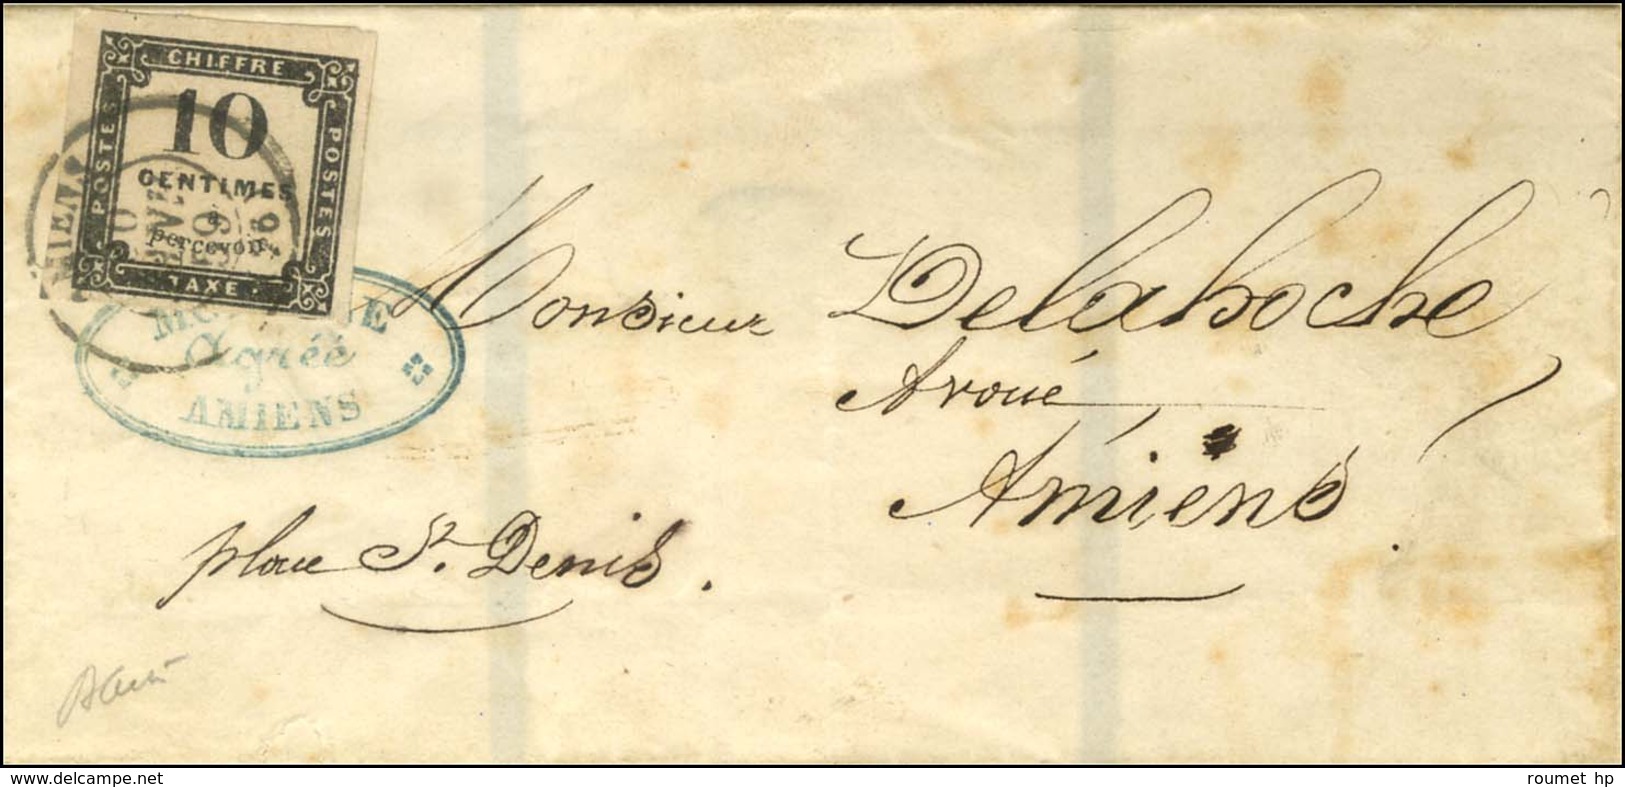 CHIFFRE
POSTES
POSTES
10
CENTIMES
à
percevoir
TAXE
Agréé
AMIENS
Monsieur Delahoche
Avoué,
Amiens.
place St. Denis.
www.delcampe.net
roumet hp